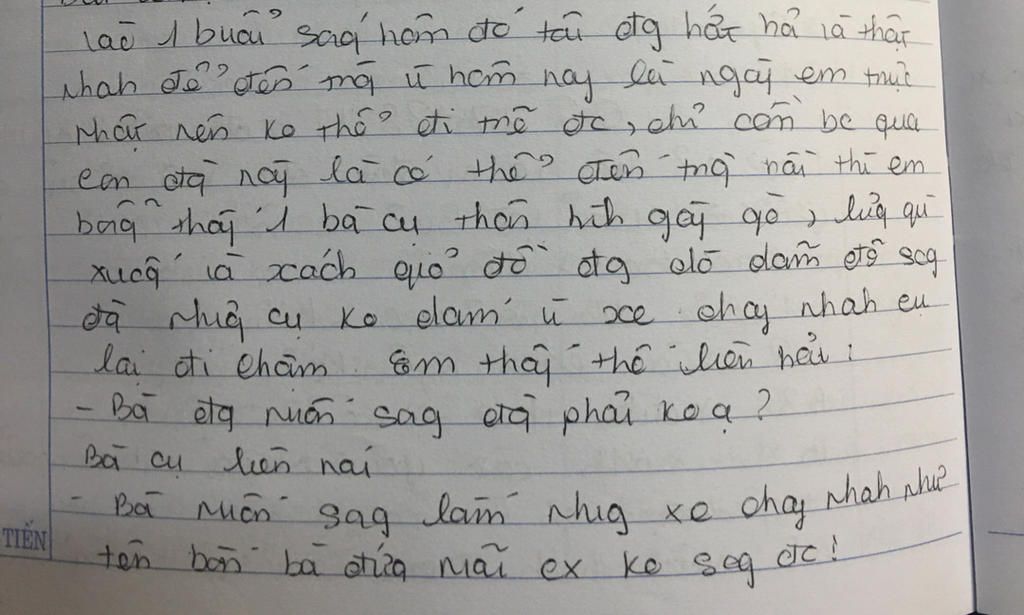 vào 1 buổi ság hôm đó tôi đg hớt hả và thật
nhah để đến trg vì hôm nay là ngày em trực
nhật nên ko thể đi trễ đc, chỉ còn bc qua
con đg này là có thể đến trg rồi thì em
bỗg thấy 1 bà cụ thân hìh gầy gò, lưg gù
xuốg và xách giỏ đồ đg dò dẫm để sag
đg nhưg cụ ko dám vì xe chạy nhah cụ
lại đi chậm. Em thấy thế liền hỏi:
- Bà đg muốn sag đg phải ko ạ?
Bà cụ liền nói
- Bà muốn sag lắm nhưg xe chạy nhah như
TIẾN
tên bắn bà đứg mãi ko sag đc!